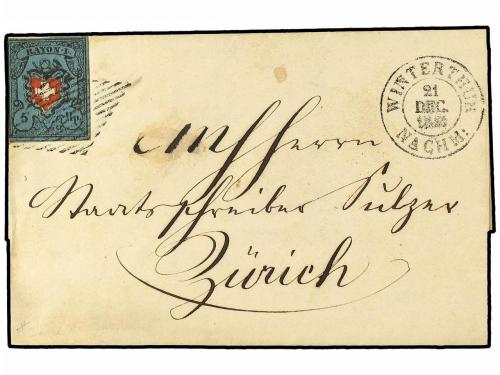 RAYON. I.
5 Rp.
WINTERTHUR
21
DEC.
NACHM:
Herrn
Staatsschreiber Sulzer
Zürich